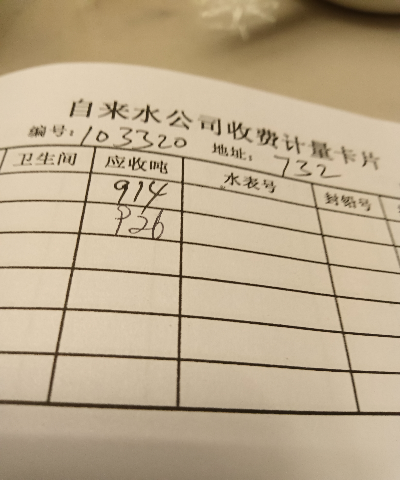 自来水公司收费计量卡片
编号: 103320 地址: 732
卫生间 应收吨 水表号 封铅号
914
926